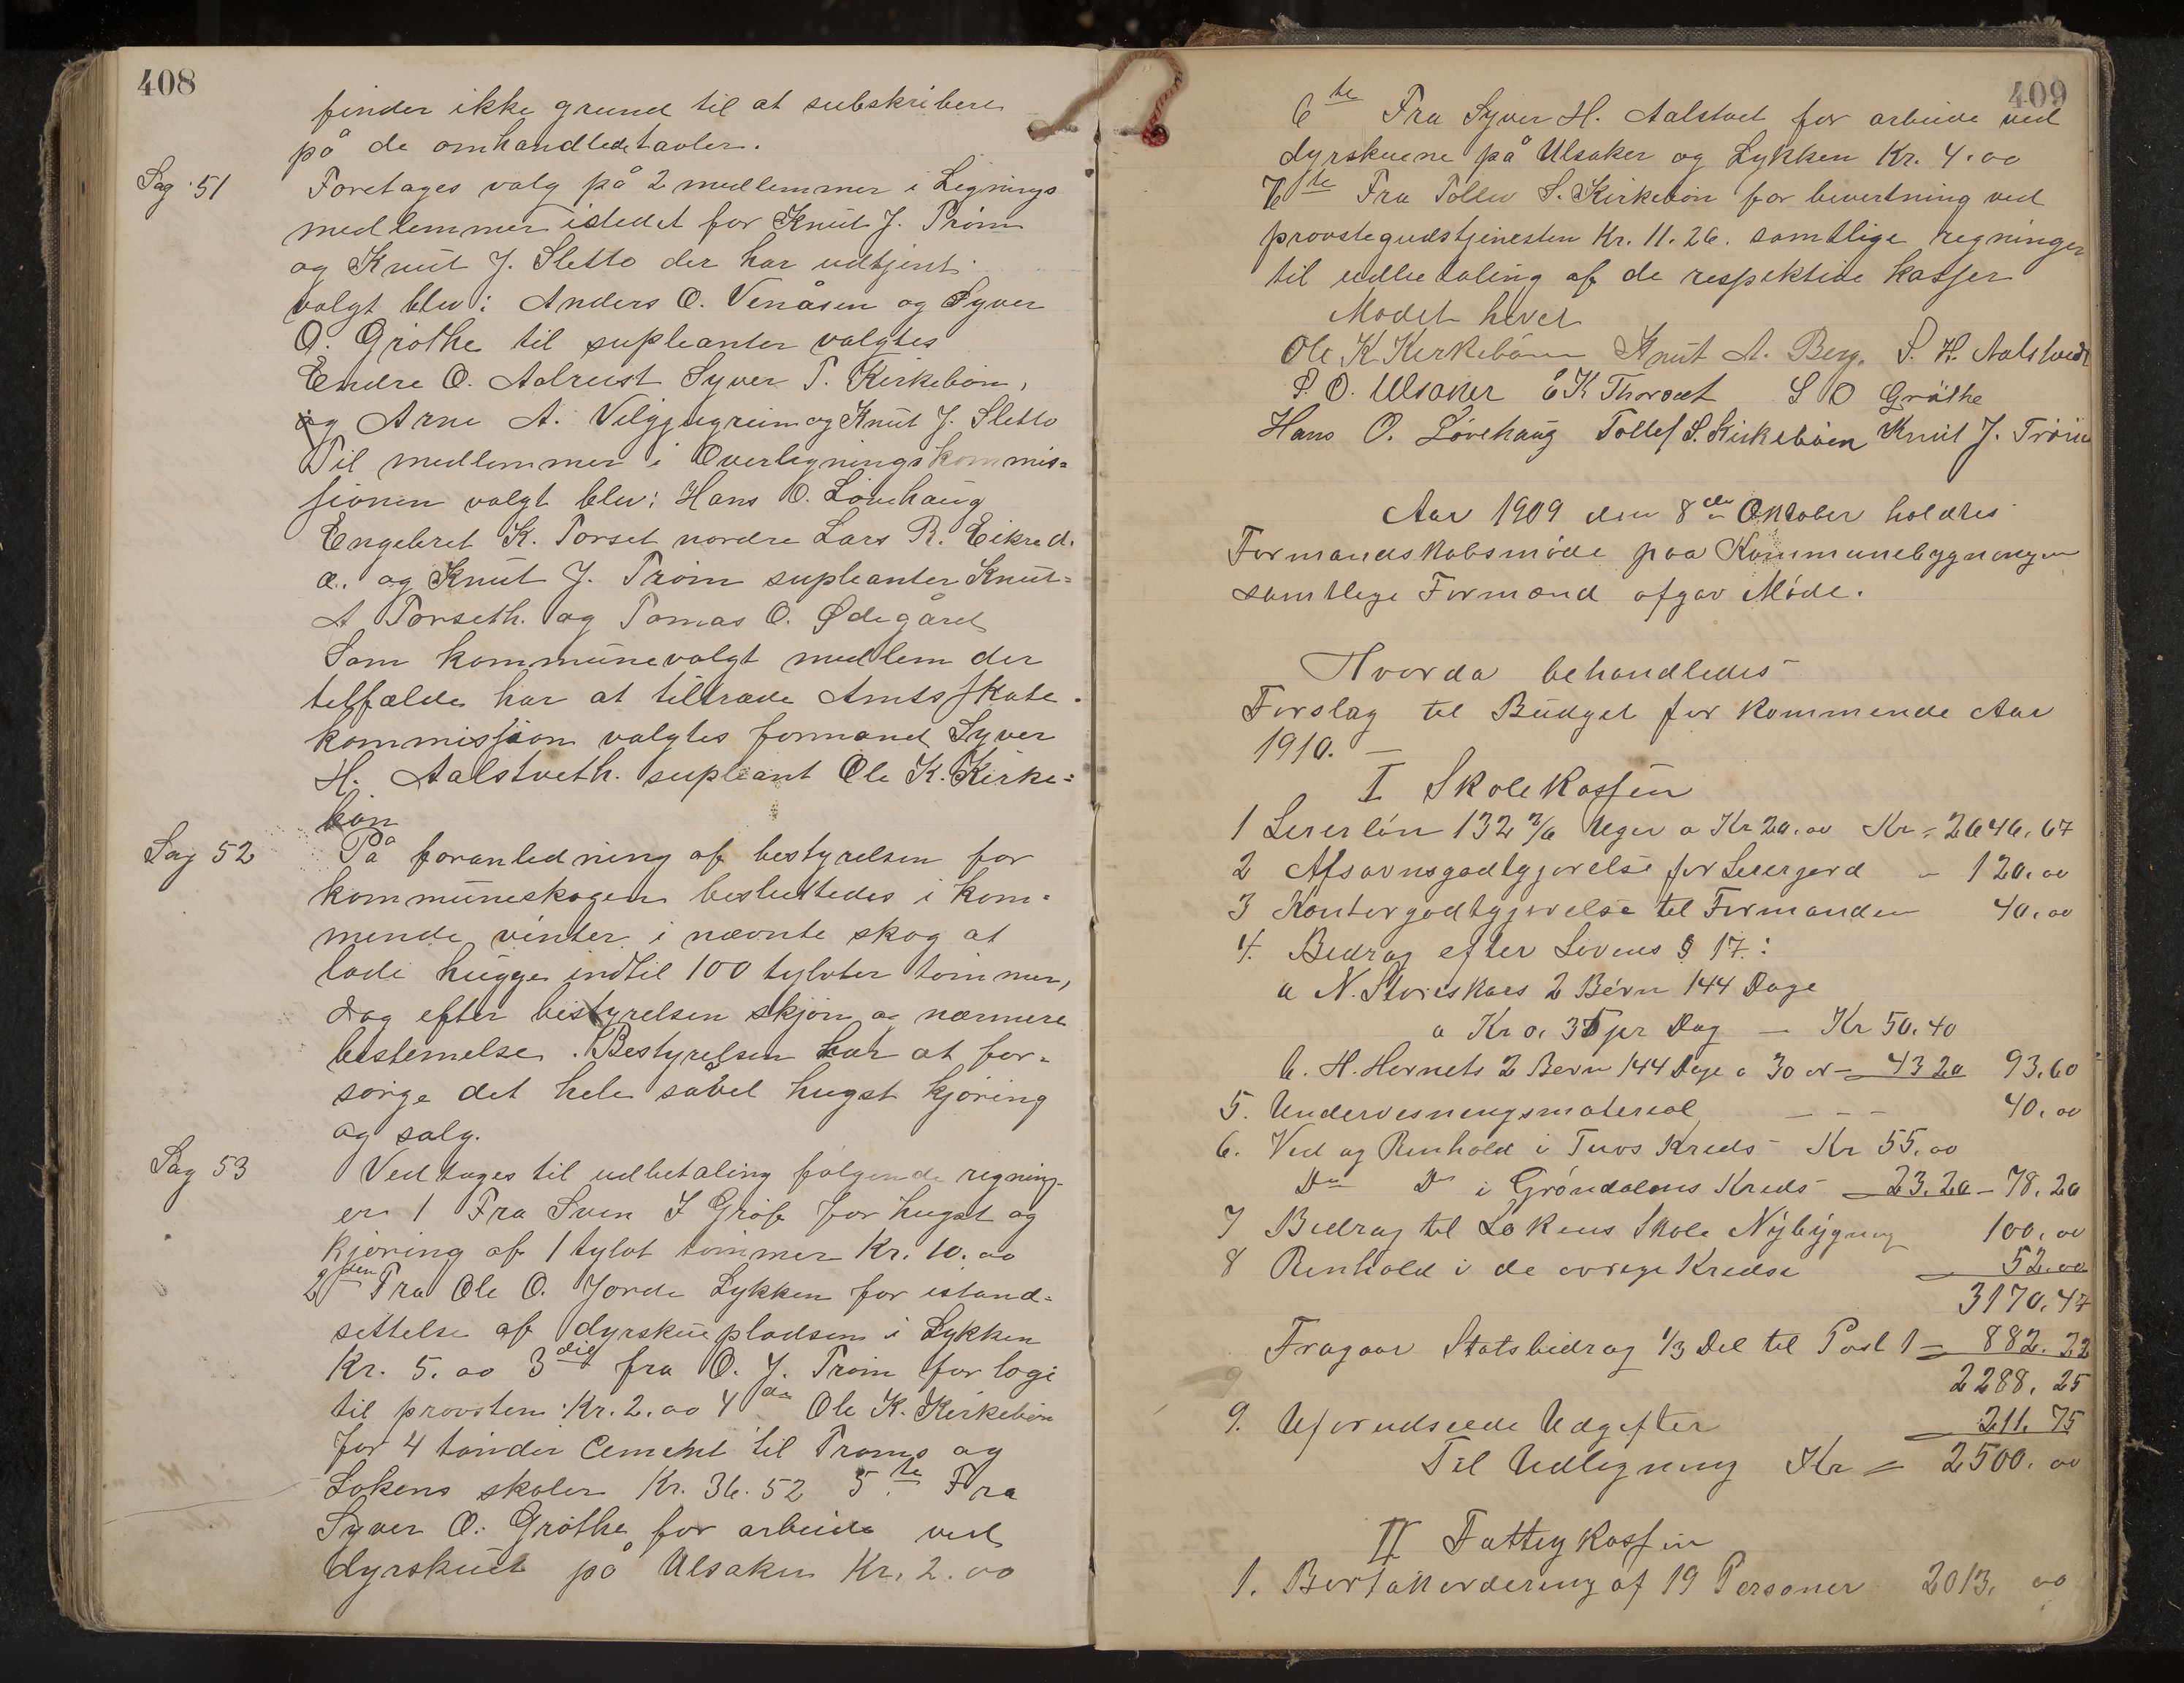 408
finder ikke grund til at subskribere
på de omhandlede tavler.
Sag 51
Foretages valg på 2 medlemmer i Lignings
medlemmer istedet for Knut J. Trøim
og Knut J. Sletto der har udtjent.
valgt blev: Anders O. Venåsen og Syver
O. Grøthe til supleanter valgtes
Endre O. Aalrust Syver T. Kirkebøn,
og Arne A. Vilgjugreim og Knut J. Sletto
Til medlemmer i Overligningskommis=
sionen valgt blev: Hans O. Løvehaug
Engebret K. Torset nordre Lars R. Eikre d.
æ. og Knut J. Trøim supleanter Knut=
A Torseth. og Tomas O. Ødegård
Som kommunevalgt medlem der
tilfælde har at tiltræde Amtsskate-
kommission valgtes formand Syver
H. Aalstveth. supleant Ole K. Kirke=
bøn
Sag 52
På foranledning af bestyrelsen for
kommuneskogen besluttedes i kom=
mende vinter i nævnte skog at
lade hugge indtil 100 tylvter tømmer,
dog efter bestyrelsen skjøn og nærmere
bestemelse. Bestyrelsen har at for=
sørge det hele såvel hugst kjøring
og salg.
Sag 53
Vedtages til udbetaling følgende regning-
er 1 Fra Sven I Grøf for hugst og
kjøring af 1 tylvt tømmer Kr. 10.00
2den Fra Ole O. Jorde Lykken for istand=
settelse af dyrskuepladsen i Lykken
Kr. 5.00 3die fra O. J. Trøim for logi
til provsten Kr. 2.00 4de Ole K. Kirkebøn
for 4 tønder Cement til Trøims og
Løkens skoler Kr. 36.52 5.te Fra
Syver O. Grøthe for arbeide ved
dyrskuet på Ulsaker Kr. 2.00
409
6te Fra Syver H. Aalstvet for arbeide ved
dyrskuene på Ulsaker og Lykken Kr. 4.00
7te Fra Tollev S. Kirkebøn for bevertning ved
provstegudstjenesten Kr. 11.26. samtlige regninger
til udbetaling af de respektive kasser
Mødet hevet
Ole K Kirkebøen Knut A. Berg. S. H. Aalstvedt
P. O. Ulsaker O K Thorset S O Grøthe
Hans O. Løvehaug Tollef S. Kirkebøen Knut J. Trøim
Aar 1909 den 8de Oktober holdtes
Formandskabsmøde paa Kommunebygningen
samtlige Formænd afgav Møde.
Hvorda behandledes
Forslag til Budget for kommende Aar
1910. —
I Skolekassen
1 Lererløn 132 2/6 Uger a Kr 20.00 Kr = 2646,67
2 Afsavnsgodtgjørelse for Lererjord - 120.00
3 Kontorgodtgjørelse til Formanden 40,00
4. Bidrag efter Lovens § 17:
a N. Storeskars 2 Børn 144 Dage
a Kr 0. 35 pr Dag — Kr 50.40
b. H. Hernets 2 Børn 144 Dage a 30 ør - 43 20 93,60
5. Undervisningsmateriel - - - 40.00
6. Ved og Renhold i Tuvs Kreds Kr 55.00
Do Do i Grøndalens Kreds 23.20 - 78.20
7 Bidrag til Løkens Skole Nybygning 100.00
8 Renhold i de øvrige Kredse 52.00
3170.47
Fragaar Statsbidrag 1/3 Del til Post 1 = 882.22
2288.25
9. Uforudseede Udgifter 211.75
Til Udligning Kr = 2500.00
II Fattigkassen
1. Bortakordering af 19 Personer 2013.00